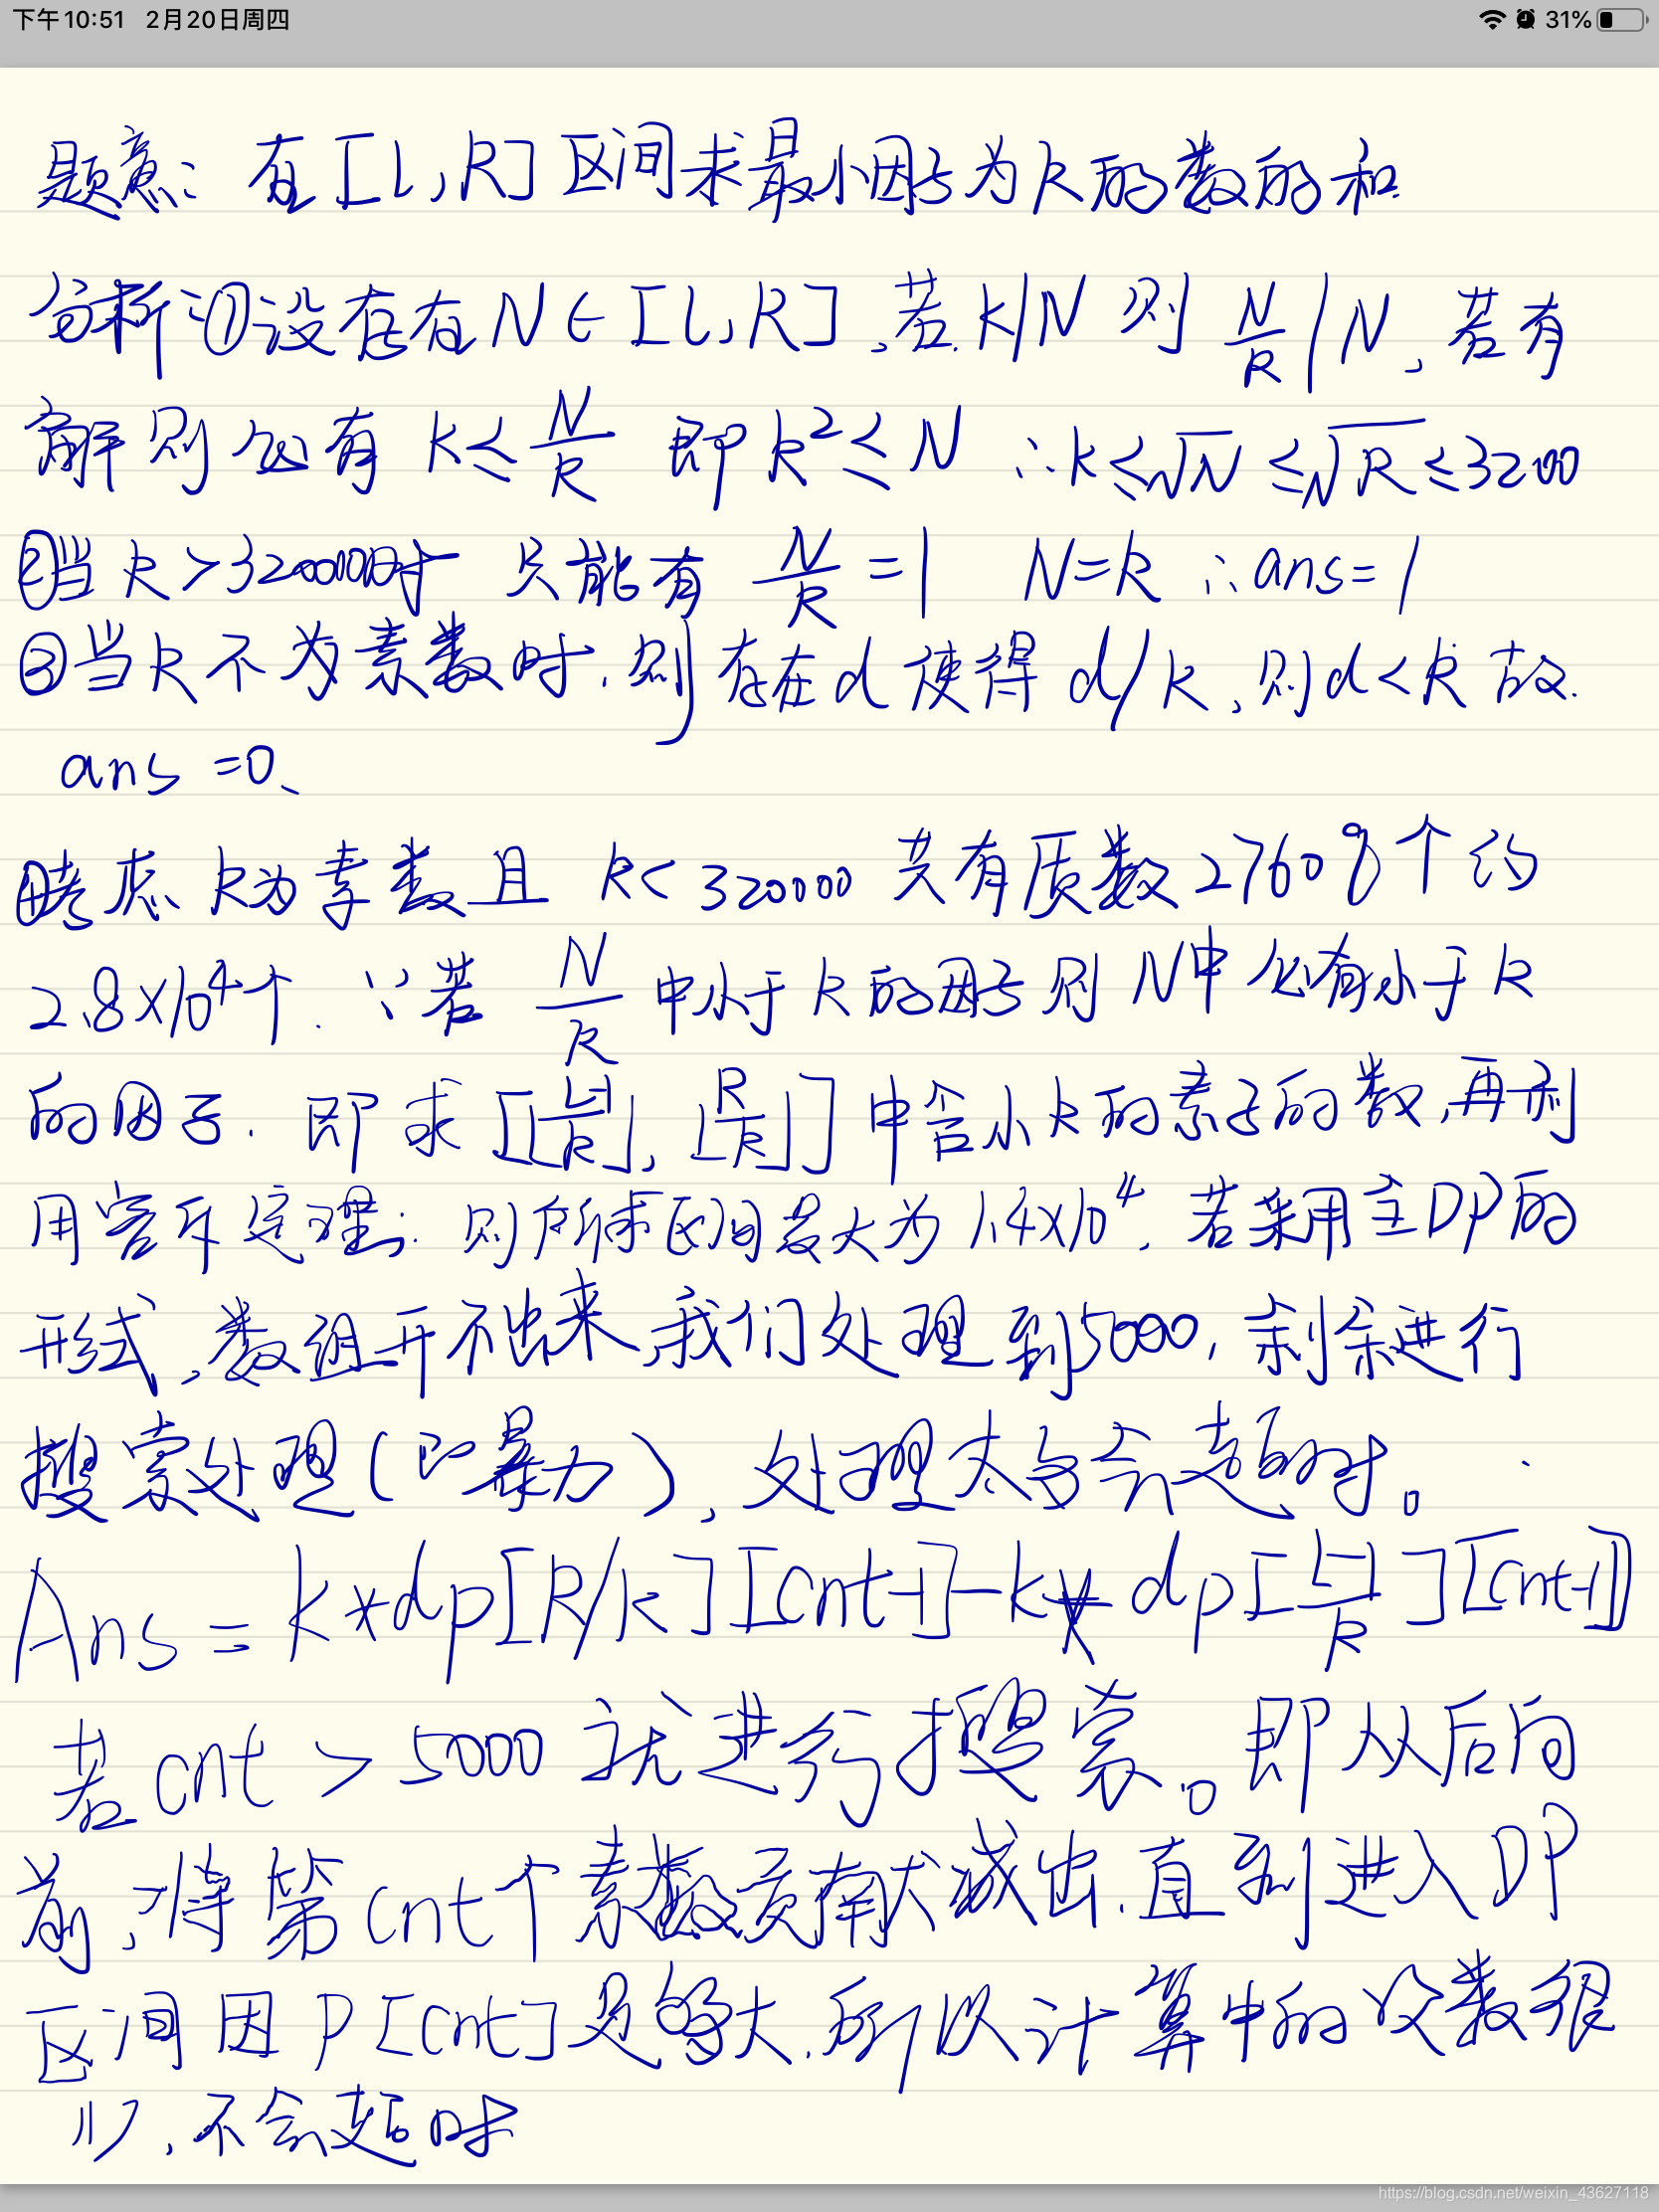 下午10:51 2月20日周四
31%
题意: 在[L,R]区间求最小因子为k的数的和
分析:①设存在N∈[L,R],若k|N 则 N/k|N,若有
解则必有 k≤N/k 即k²≤N ∴k≤√N≤√R≤3200
②当k>320000时 只能有 N/k=1 N=k ∴ans=1
③当k不为素数时,则存在d使得d/k,则d<k故.
ans=0、
④考虑k为素数且 k<320000 共有质数27608个约
2.8×10⁴个. ∵若 N/k 中小于k的因子则N中必有小于k
的因子. 即求[[L-1/k],[R/k]]中含小k的素子的数,再利
用容斥定理: 则所求区间最大为1.4×10⁴,若采用主DP的
形式,数组开不出来,我们处理到5000,剩余进行
搜索处理(即暴力),处理太多会超时。
Ans=k*dp[R/k][Cnt-1]-k*dp[L-1/k][Cnt-1]
若cnt>5000就进行搜索。即从后向
前,将第cnt个素数贡献减出,直到进入DP
区间因P[cnt]足够大,所以计算中的次数很
少,不会超时
https://blog.csdn.net/weixin_43627118